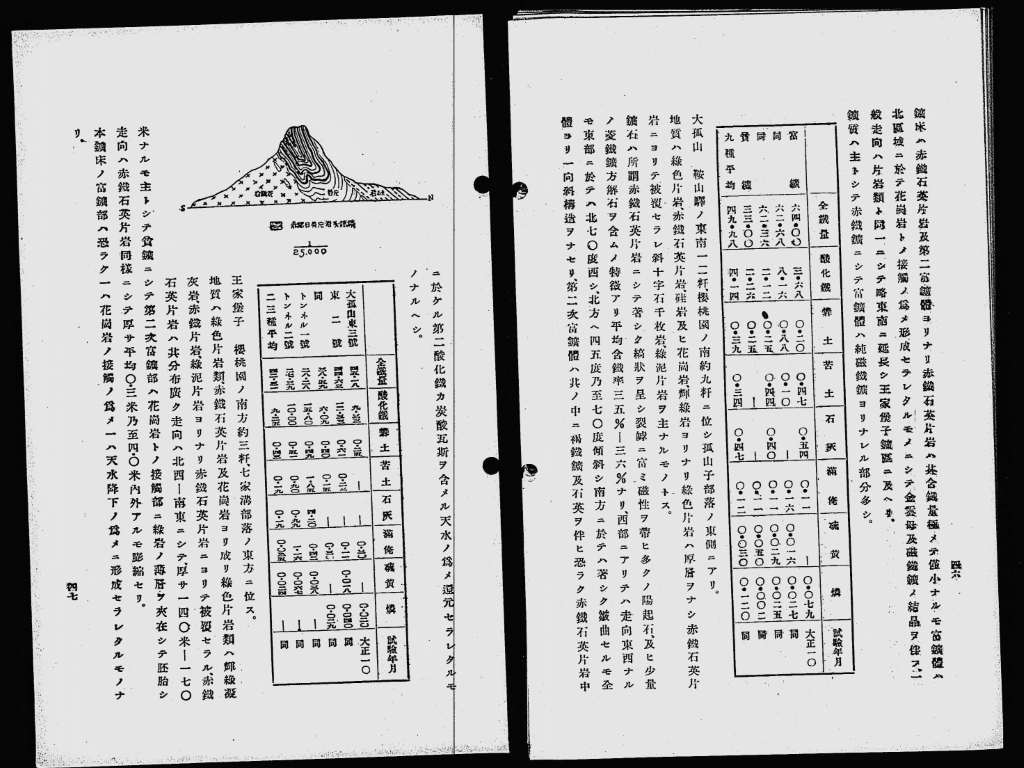 鑛床ハ赤鐵石英片岩及第二富鑛體ヨリナリ赤鐵石英片岩ハ其含鐵量極メテ僅小ナルモ富鑛體ハ
北區域ニ於テ花崗岩トノ接觸ノ爲メ形成セラレタルモノニシテ金雲母及磁鐵鑛ノ結晶ヲ伴フ、一
般走向ハ片岩類ト同一ニシテ略東南ニ延長シ王家堡子鑛區ニ及ヘリ。
鑛質ハ主トシテ赤鐵鑛ニシテ富鑛體ハ純磁鐵鑛ヨリナレル部分多シ。
全鐵量 酸化鐵 礬土 苦土 石灰 滿俺 硫黄 燐 試驗年月
富鑛 六四・〇〇 三・六八 〇・二〇 〇・四七 〇・五四 〇・一一 〇・〇七九 大正一〇
同 六二・六八 八・一六 〇・八八 〇・一〇 〇・一六 〇・〇一六 〇・〇二七 同
同 六二・三六 二・一二 〇・二五 〇・四四 〇・四〇 〇・一一 〇・〇二九 〇・〇二五 同
貧鑛 三三・〇〇 二・二六 〇・二五 〇・一一 〇・〇五〇 〇・〇〇二 同
九種平均 四九・九八 四・一四 〇・三九 〇・三四 〇・四七 〇・一二 〇・〇三〇 〇・一二〇 同
大孤山 鞍山驛ノ東南一二粁櫻桃園ノ南約九粁ニ位シ孤山子部落ノ東側ニアリ。
地質ハ綠色片岩、赤鐵石英片岩、硅岩及ヒ花崗岩、輝綠岩ヨリナリ綠色片岩ハ厚層ヲナシ赤鐵石英片
岩ニヨリテ被覆セラレ斜十字石千枚岩、綠泥片岩ヲ主ナルモノトス。
鑛石ハ所謂赤鐵石英片岩ニシテ著シク縞狀ヲ呈シ裂罅ニ富ミ磁性ヲ帶ヒ多クノ陽起石及ヒ少量
ノ菱鐵鑛方解石ヲ含ムノ特徴アリ平均含鐵率三五%―三六%ナリ、西部ニアリテハ走向東西ナル
モ東部ニ於テハ北七〇度西シ、北方ヘ四五度乃至七〇度傾斜シ南方ニ於テハ著シク皺曲セルモ全
體ヨリ一向斜構造ヲナセリ第二次富鑛體ハ其ノ中ニ褐鐵鑛及石英ヲ伴ヒ恐ラク赤鐵石英片岩中
四六
ニ於ケル第二酸化鐵カ炭酸瓦斯ヲ含メル天水ノ爲メ還元セラレタルモ
ノナルヘシ。
全鐵量 酸化鐵 礬土 苦土 石灰 滿俺 硫黄 燐 試驗年月
大孤山東三號 大正一〇
東二號 同
同 同
トンネル一號 同
トンネル二號 同
二三種平均 同
S
N
1
25.000
王家堡子 櫻桃園ノ南方約三粁、七家溝部落ノ東方ニ位ス。
地質ハ綠色片岩類、赤鐵石英片岩及花崗岩ヨリ成リ綠色片岩類ハ輝綠凝
灰岩、赤鐵片岩、綠泥片岩ヨリナリ赤鐵石英片岩ニヨリテ被覆セラル、赤鐵
石英片岩ハ其分布廣ク走向ハ北西―南東ニシテ厚サ一四〇米―一七〇
米ナルモ主トシテ貧鑛ニシテ第二次富鑛部ハ花崗岩トノ接觸部ニ綠岩ノ薄層ヲ夾在シテ胚胎シ
走向ハ赤鐵石英片岩同樣ニシテ厚サ平均〇・三米乃至四・〇米內外アルモ膨縮セリ。
本鑛床ノ富鑛部ハ恐ラク一ハ花崗岩ノ接觸ノ爲メ一ハ天水降下ノ爲メニ形成セラレタルモノナ
リ。
四七